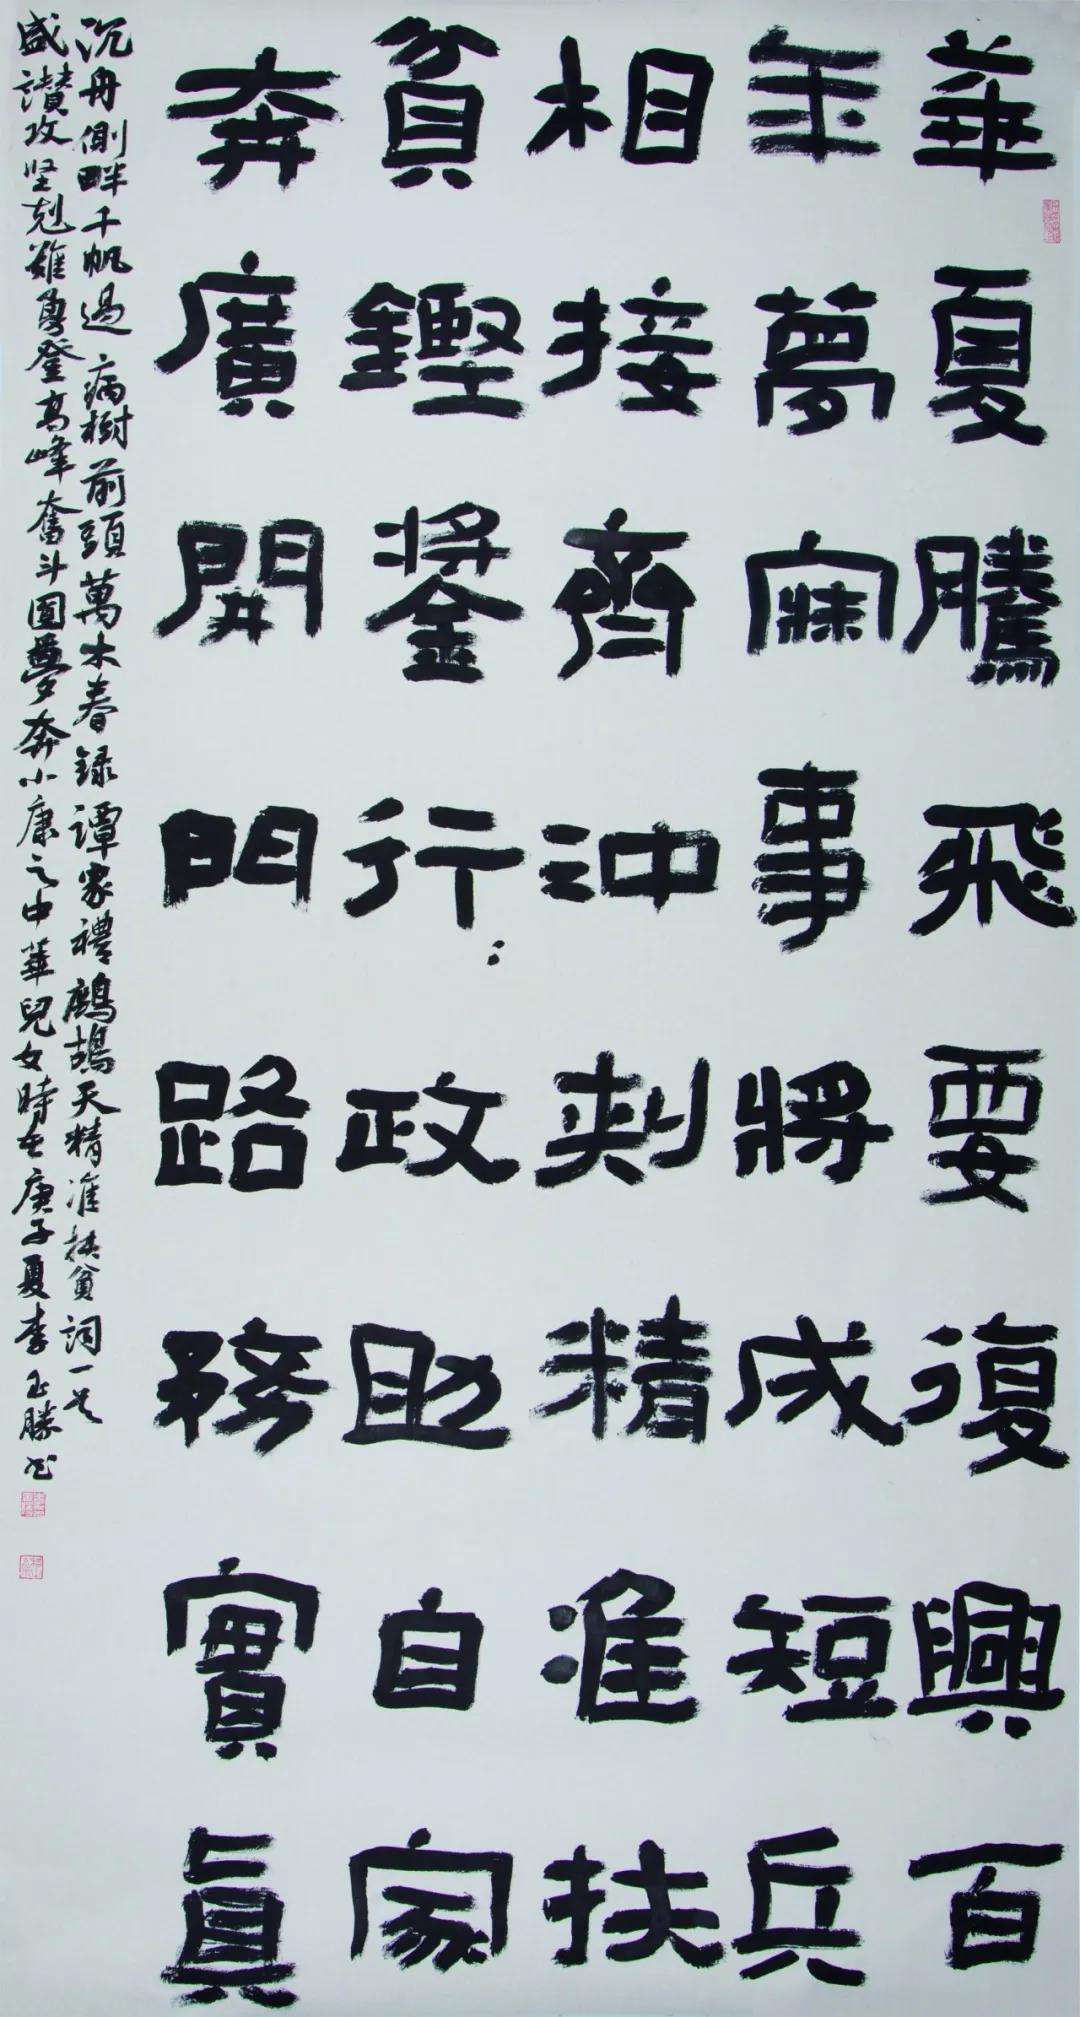 華夏騰飛要復興百
年夢寐事將成短兵
相接齊沖刺精准扶
貧鏗鏘行政助自家
奔廣開門路務實真
沉舟側畔千帆過病樹前頭萬木春録譚家禮鷓鴣天精准扶貧詞一首
盛讃攻坚剋難勇登高峰奮斗圓夢奔小康之中華兒女時在庚子夏李玉勝书